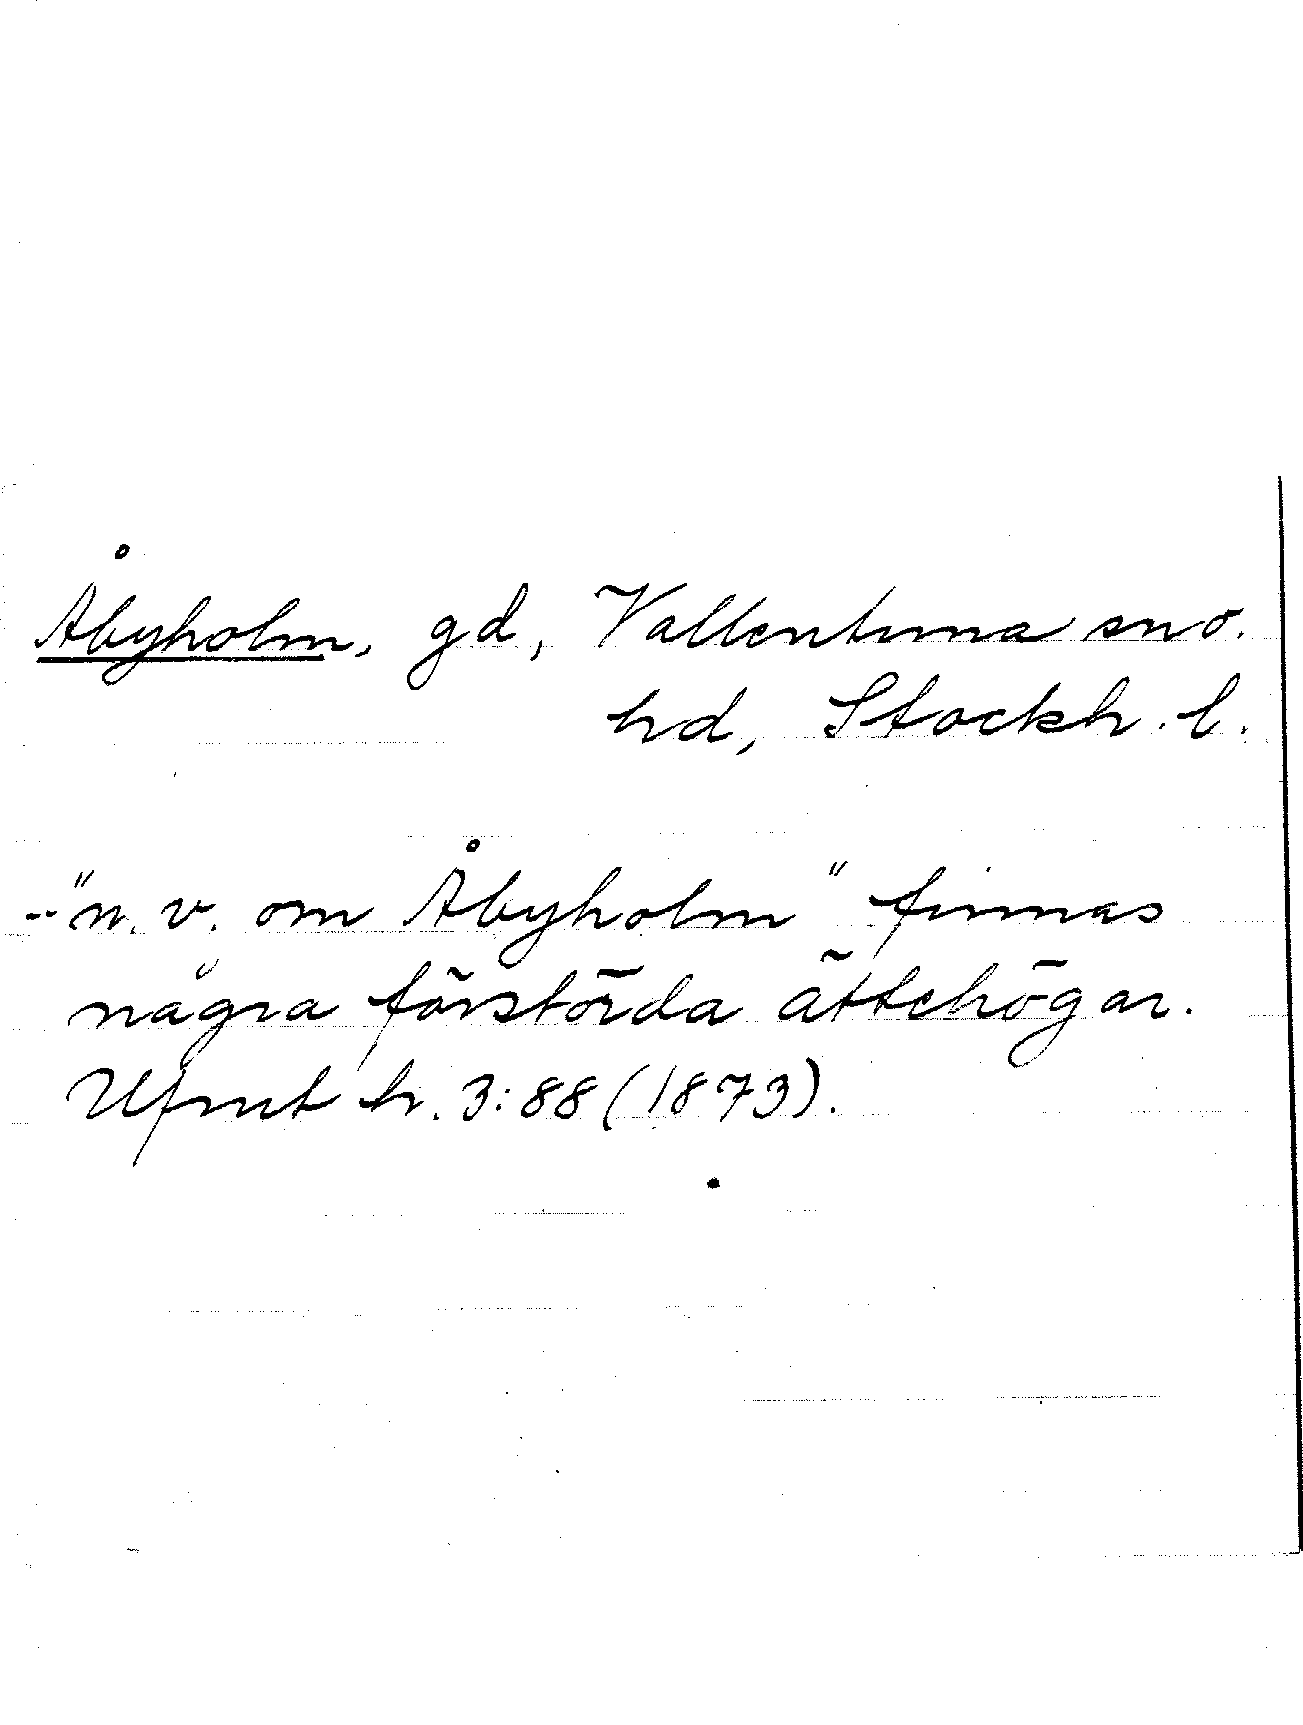 Åbyholm, gd, Vallentuna sn o.
hd, Stockh. l.
--"n.v. om Åbyholm" finnas
några förstörda ättehögar.
Ufmt h. 3:88 (1873).